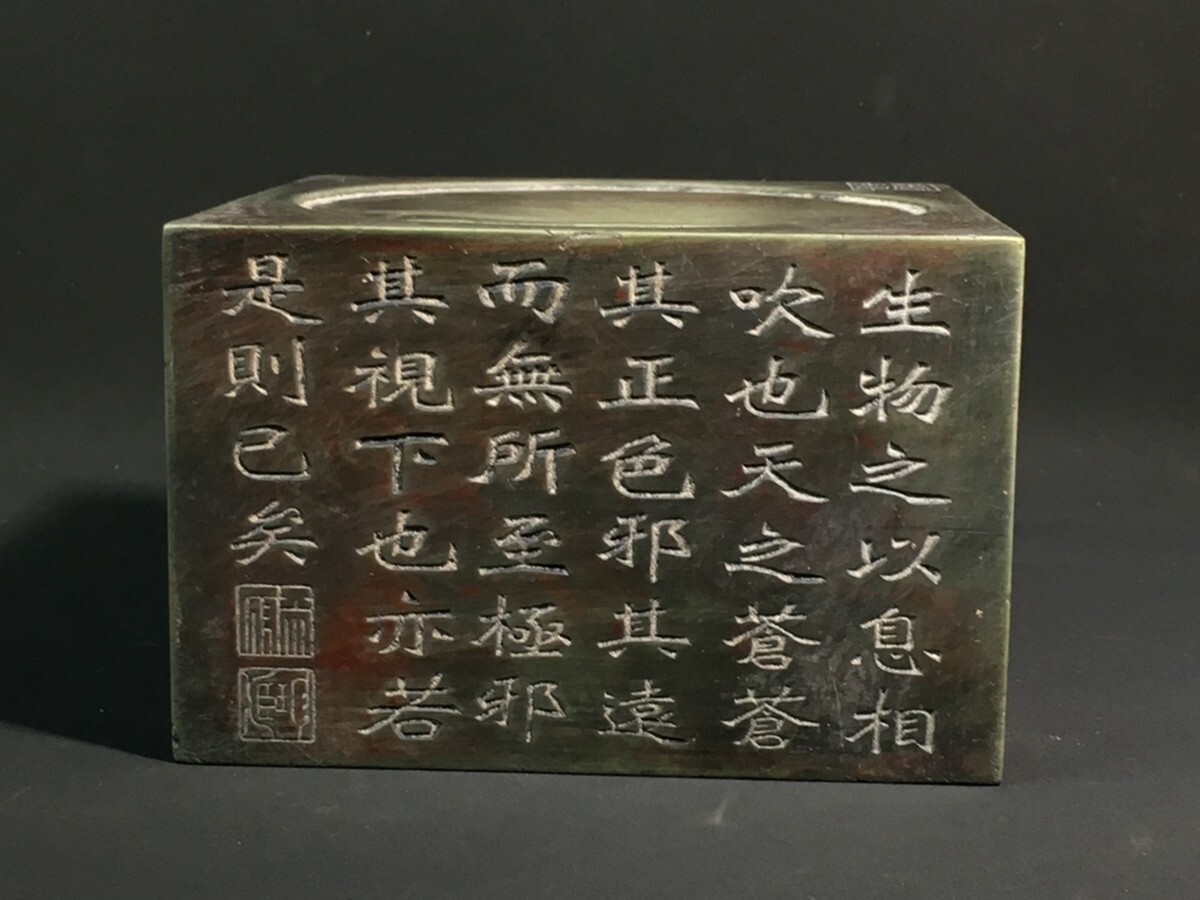 生物之以息相
吹也天之蒼蒼
其正色邪其遠
而無所至極邪
其視下也亦若
是則已矣